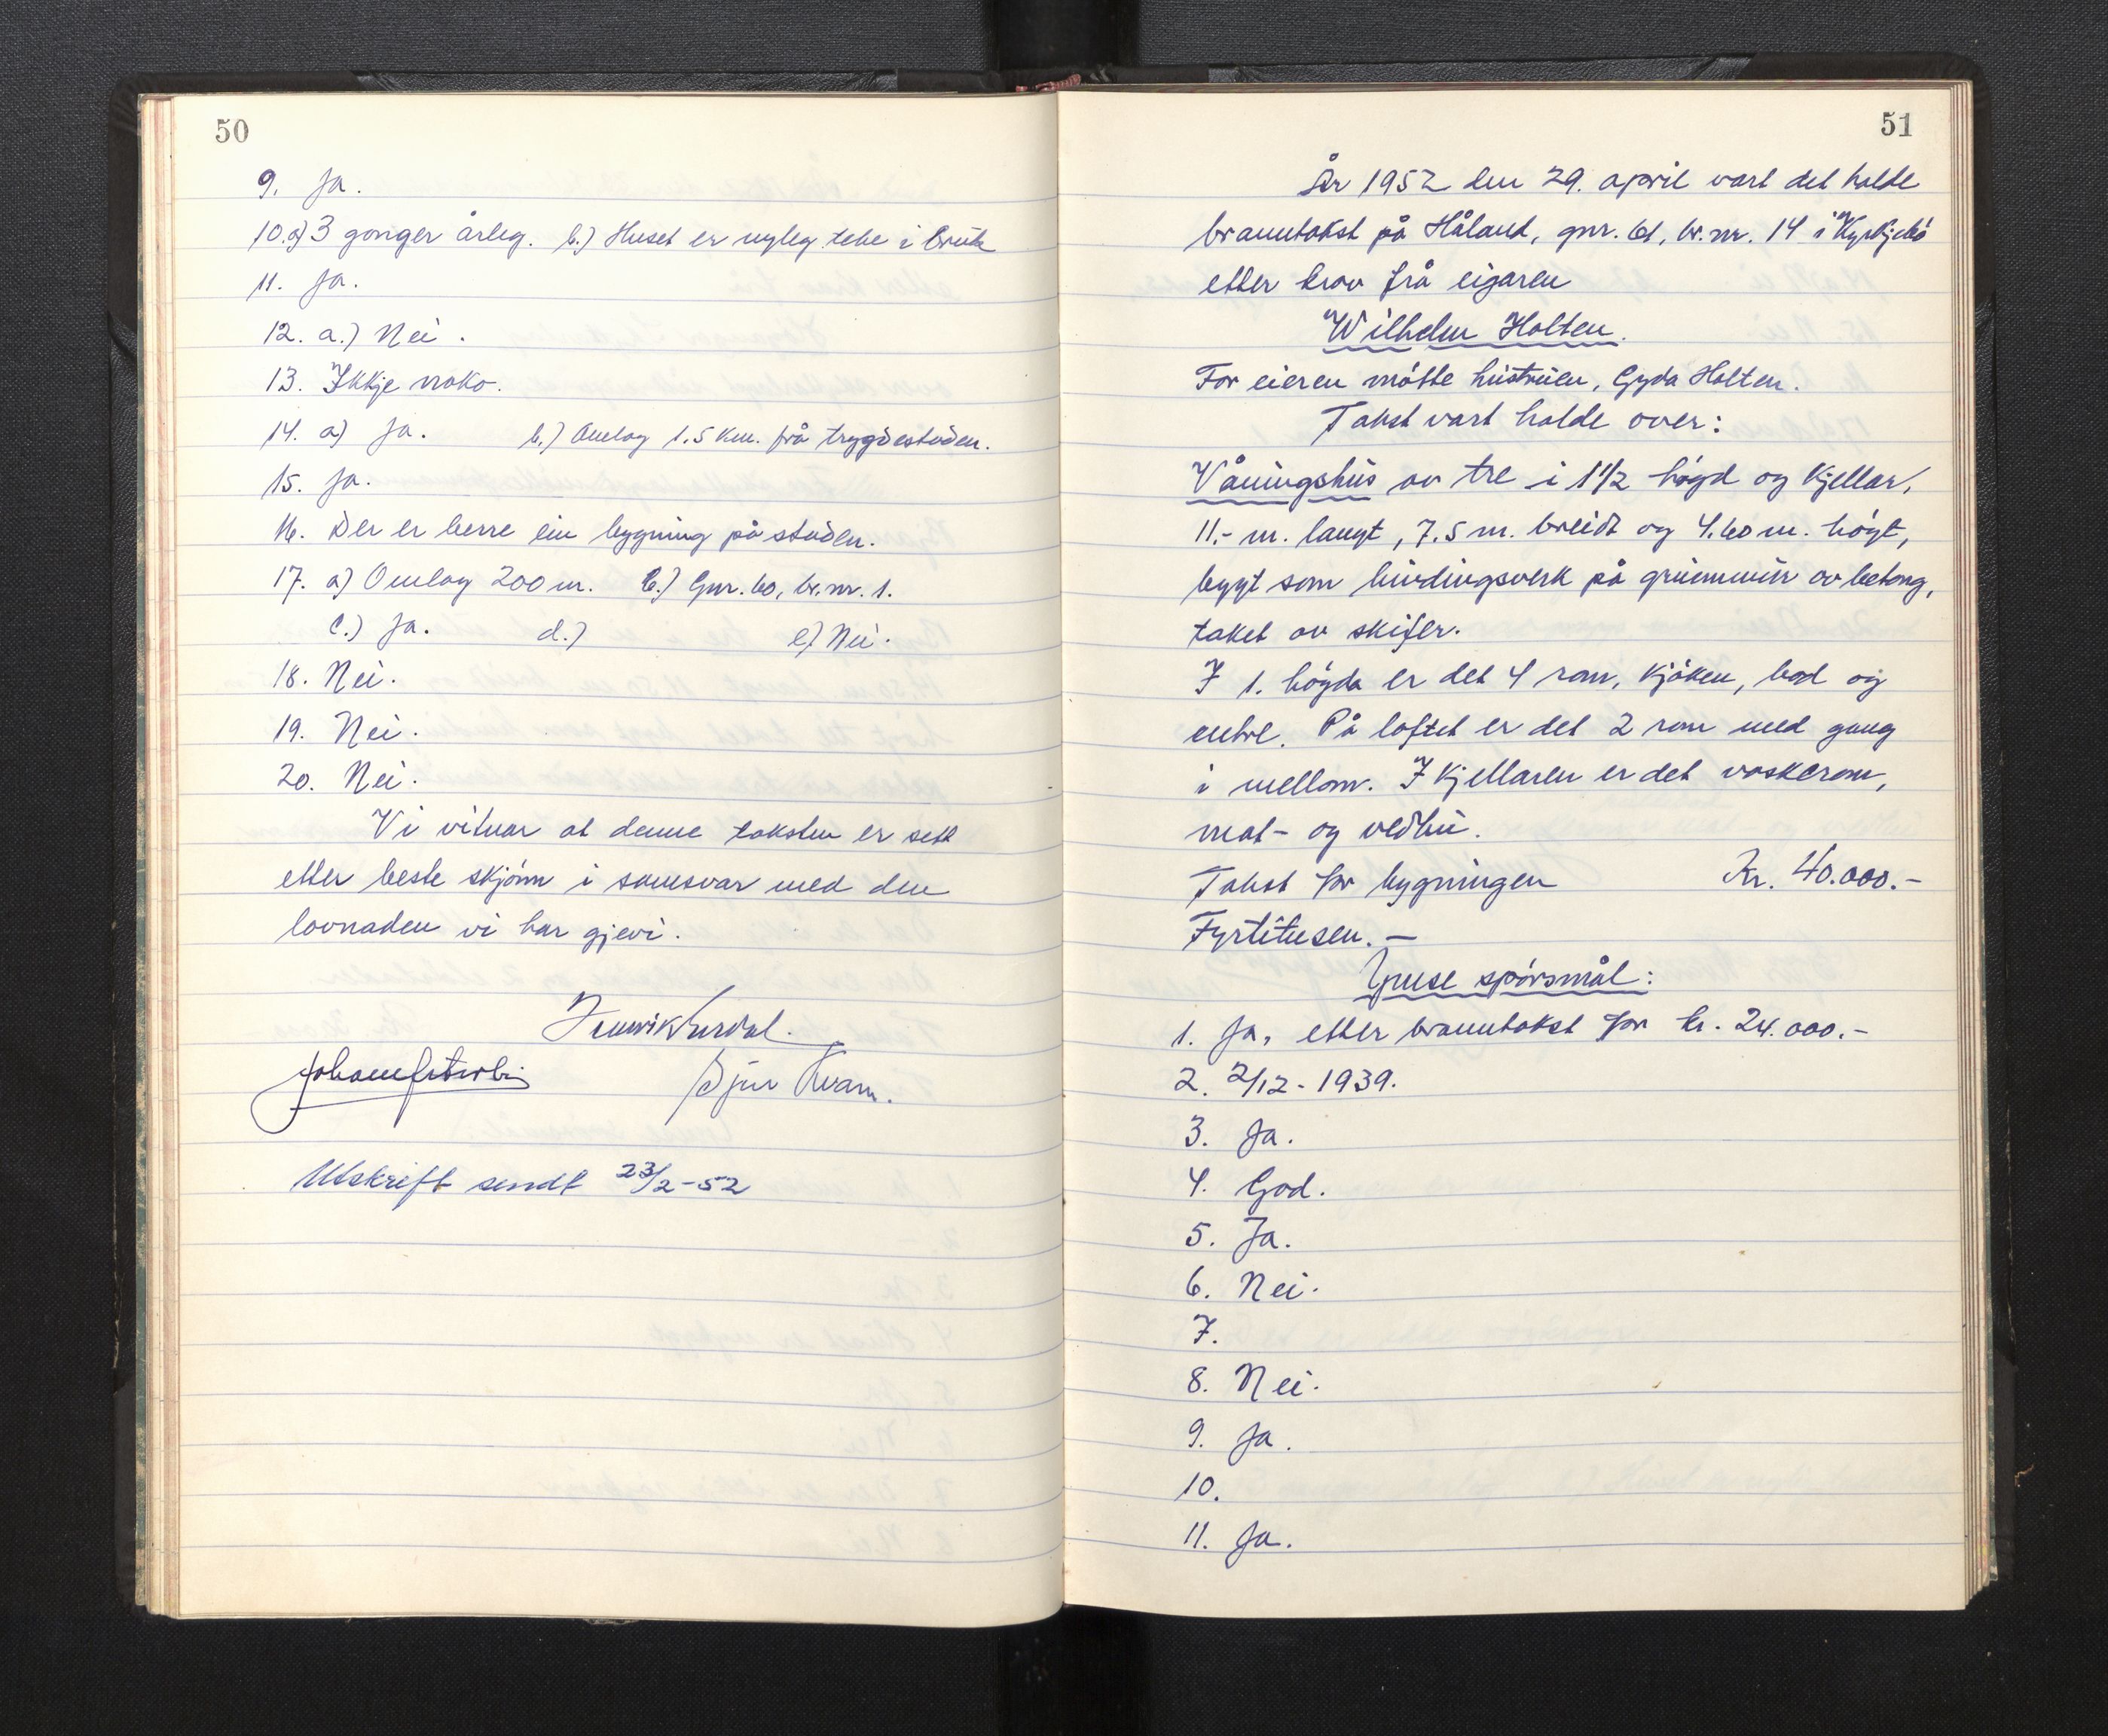 50
9. Ja.
10.a) 3 gonger årleg. b.) Huset er nyleg teke i bruk
11. Ja.
12. a.) Nei.
13. Ikkje noko.
14. a) Ja. b.) Omlag 1.5 km. frå trygdestaden.
15. Ja.
16. Der er berre ein bygning på staden.
17. a) Omlag 200 m. b.) Gnr. 60, br.nr. 1.
c.) Ja. d.) e) Nei.
18. Nei.
19. Nei.
20. Nei.
Vi vitnar at denne taksten er sett
etter beste skjønn i samsvar med den
lovnaden vi har gjevi.
Sjur Kvam.
Utskrift sendt 23/2-52
51
År 1952 den 29. april vart det halde
branntakst på Håland, gnr. 61, br.nr. 14 i Kyrkjebø
etter krav frå eigaren
Wilhelm Holten.
For eieren møtte hustruen, Gyda Holten.
Takst vart halde over:
Våningshus av tre i 1 1/2 høgd og kjellar,
11.- m. langt, 7.5 m. breidt og 4.60 m. høgt,
bygt som bindingsverk på grunnmur av betong,
taket av skifer.
I 1. høgda er det 4 rom, kjøken, bod og
entre. På loftet er det 2 rom med gang
i mellom. I kjellaren er det vaskerom,
mat- og vedbu.
Takst for bygningen Kr. 40.000.-
Fyrtitusen. —
Ymse spørsmål:
1. Ja, etter branntakst for kr. 24.000.-
2. 2/12 - 1939.
3. Ja.
4. God.
5. Ja.
6. Nei.
7.
8. Nei.
9. Ja.
10.
11. Ja.